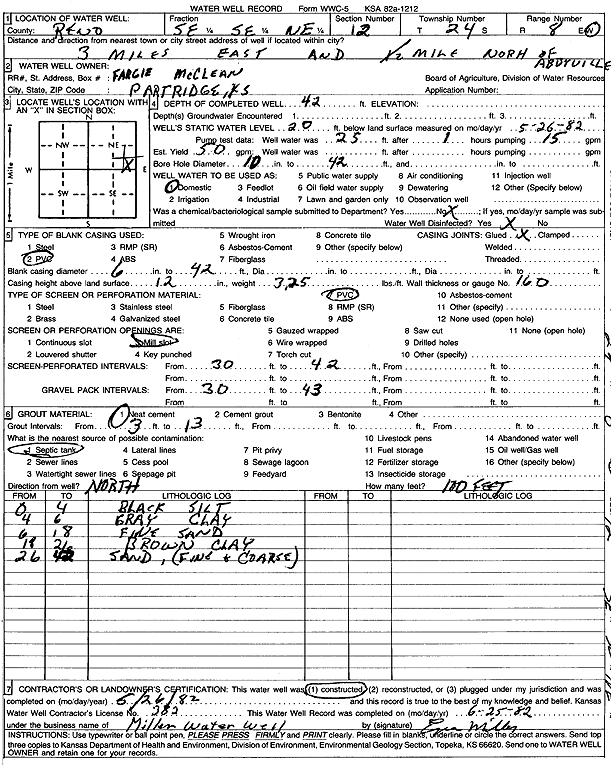 WATER WELL RECORD Form WWC-5 KSA 82a-1212
1 LOCATION OF WATER WELL: Fraction Section Number Township Number Range Number
County: RENO SE ¼ SE ¼ NE ¼ 12 T 24 S R 8 E/W
Distance and direction from nearest town or city street address of well if located within city?
3 MILES EAST AND ½ MILE NORH OF ABBYVILLE
2 WATER WELL OWNER: FARGIE McCLEAN
RR#, St. Address, Box # : Board of Agriculture, Division of Water Resources
City, State, ZIP Code : PARTRIDGE, KS Application Number:
3 LOCATE WELL'S LOCATION WITH AN "X" IN SECTION BOX: 4 DEPTH OF COMPLETED WELL 42 ft. ELEVATION:
N
Depth(s) Groundwater Encountered 1. ft. 2. ft. 3. ft.
WELL'S STATIC WATER LEVEL 20 ft. below land surface measured on mo/day/yr 5-26-82
NW NE
Pump test data: Well water was 25 ft. after 1 hours pumping 15 gpm
Est. Yield 50 gpm: Well water was ft. after hours pumping gpm
W X E
1 Mile
Bore Hole Diameter 10 in. to 42 ft., and in. to ft.
WELL WATER TO BE USED AS: 5 Public water supply 8 Air conditioning 11 Injection well
SW SE
1 Domestic 3 Feedlot 6 Oil field water supply 9 Dewatering 12 Other (Specify below)
2 Irrigation 4 Industrial 7 Lawn and garden only 10 Observation well
S
Was a chemical/bacteriological sample submitted to Department? Yes No X ; If yes, mo/day/yr sample was submitted Water Well Disinfected? Yes X No
5 TYPE OF BLANK CASING USED: 5 Wrought iron 8 Concrete tile CASING JOINTS: Glued X Clamped
1 Steel 3 RMP (SR) 6 Asbestos-Cement 9 Other (specify below) Welded
2 PVC 4 ABS 7 Fiberglass Threaded
Blank casing diameter 6 in. to 42 ft., Dia in. to ft., Dia in. to ft.
Casing height above land surface 12 in., weight 3.25 lbs./ft. Wall thickness or gauge No. 160
TYPE OF SCREEN OR PERFORATION MATERIAL: 7 PVC 10 Asbestos-cement
1 Steel 3 Stainless steel 5 Fiberglass 8 RMP (SR) 11 Other (specify)
2 Brass 4 Galvanized steel 6 Concrete tile 9 ABS 12 None used (open hole)
SCREEN OR PERFORATION OPENINGS ARE: 5 Gauzed wrapped 8 Saw cut 11 None (open hole)
1 Continuous slot 3 Mill slot 6 Wire wrapped 9 Drilled holes
2 Louvered shutter 4 Key punched 7 Torch cut 10 Other (specify)
SCREEN-PERFORATED INTERVALS: From 30 ft. to 42 ft., From ft. to ft.
From ft. to ft., From ft. to ft.
GRAVEL PACK INTERVALS: From 30 ft. to 43 ft., From ft. to ft.
From ft. to ft., From ft. to ft.
6 GROUT MATERIAL: 1 Neat cement 2 Cement grout 3 Bentonite 4 Other
Grout Intervals: From 3 ft. to 13 ft., From ft. to ft., From ft. to ft.
What is the nearest source of possible contamination: 10 Livestock pens 14 Abandoned water well
1 Septic tank 4 Lateral lines 7 Pit privy 11 Fuel storage 15 Oil well/Gas well
2 Sewer lines 5 Cess pool 8 Sewage lagoon 12 Fertilizer storage 16 Other (specify below)
3 Watertight sewer lines 6 Seepage pit 9 Feedyard 13 Insecticide storage
Direction from well? NORTH How many feet? 100 FEET
FROM TO LITHOLOGIC LOG FROM TO LITHOLOGIC LOG
0 4 BLACK SILT
4 6 GRAY CLAY
6 18 FINE SAND
18 26 BROWN CLAY
26 42 SAND, (FINE & COARSE)
7 CONTRACTOR'S OR LANDOWNER'S CERTIFICATION: This water well was (1) constructed, (2) reconstructed, or (3) plugged under my jurisdiction and was
completed on (mo/day/year) 5/26/82 and this record is true to the best of my knowledge and belief. Kansas
Water Well Contractor's License No. 282 This Water Well Record was completed on (mo/day/yr) 6-25-82
under the business name of Miller Water Well by (signature) Miller
INSTRUCTIONS: Use typewriter or ball point pen, PLEASE PRESS FIRMLY and PRINT clearly. Please fill in blanks, underline or circle the correct answers. Send top
three copies to Kansas Department of Health and Environment, Division of Environment, Environmental Geology Section, Topeka, KS 66620. Send one to WATER WELL
OWNER and retain one for your records.